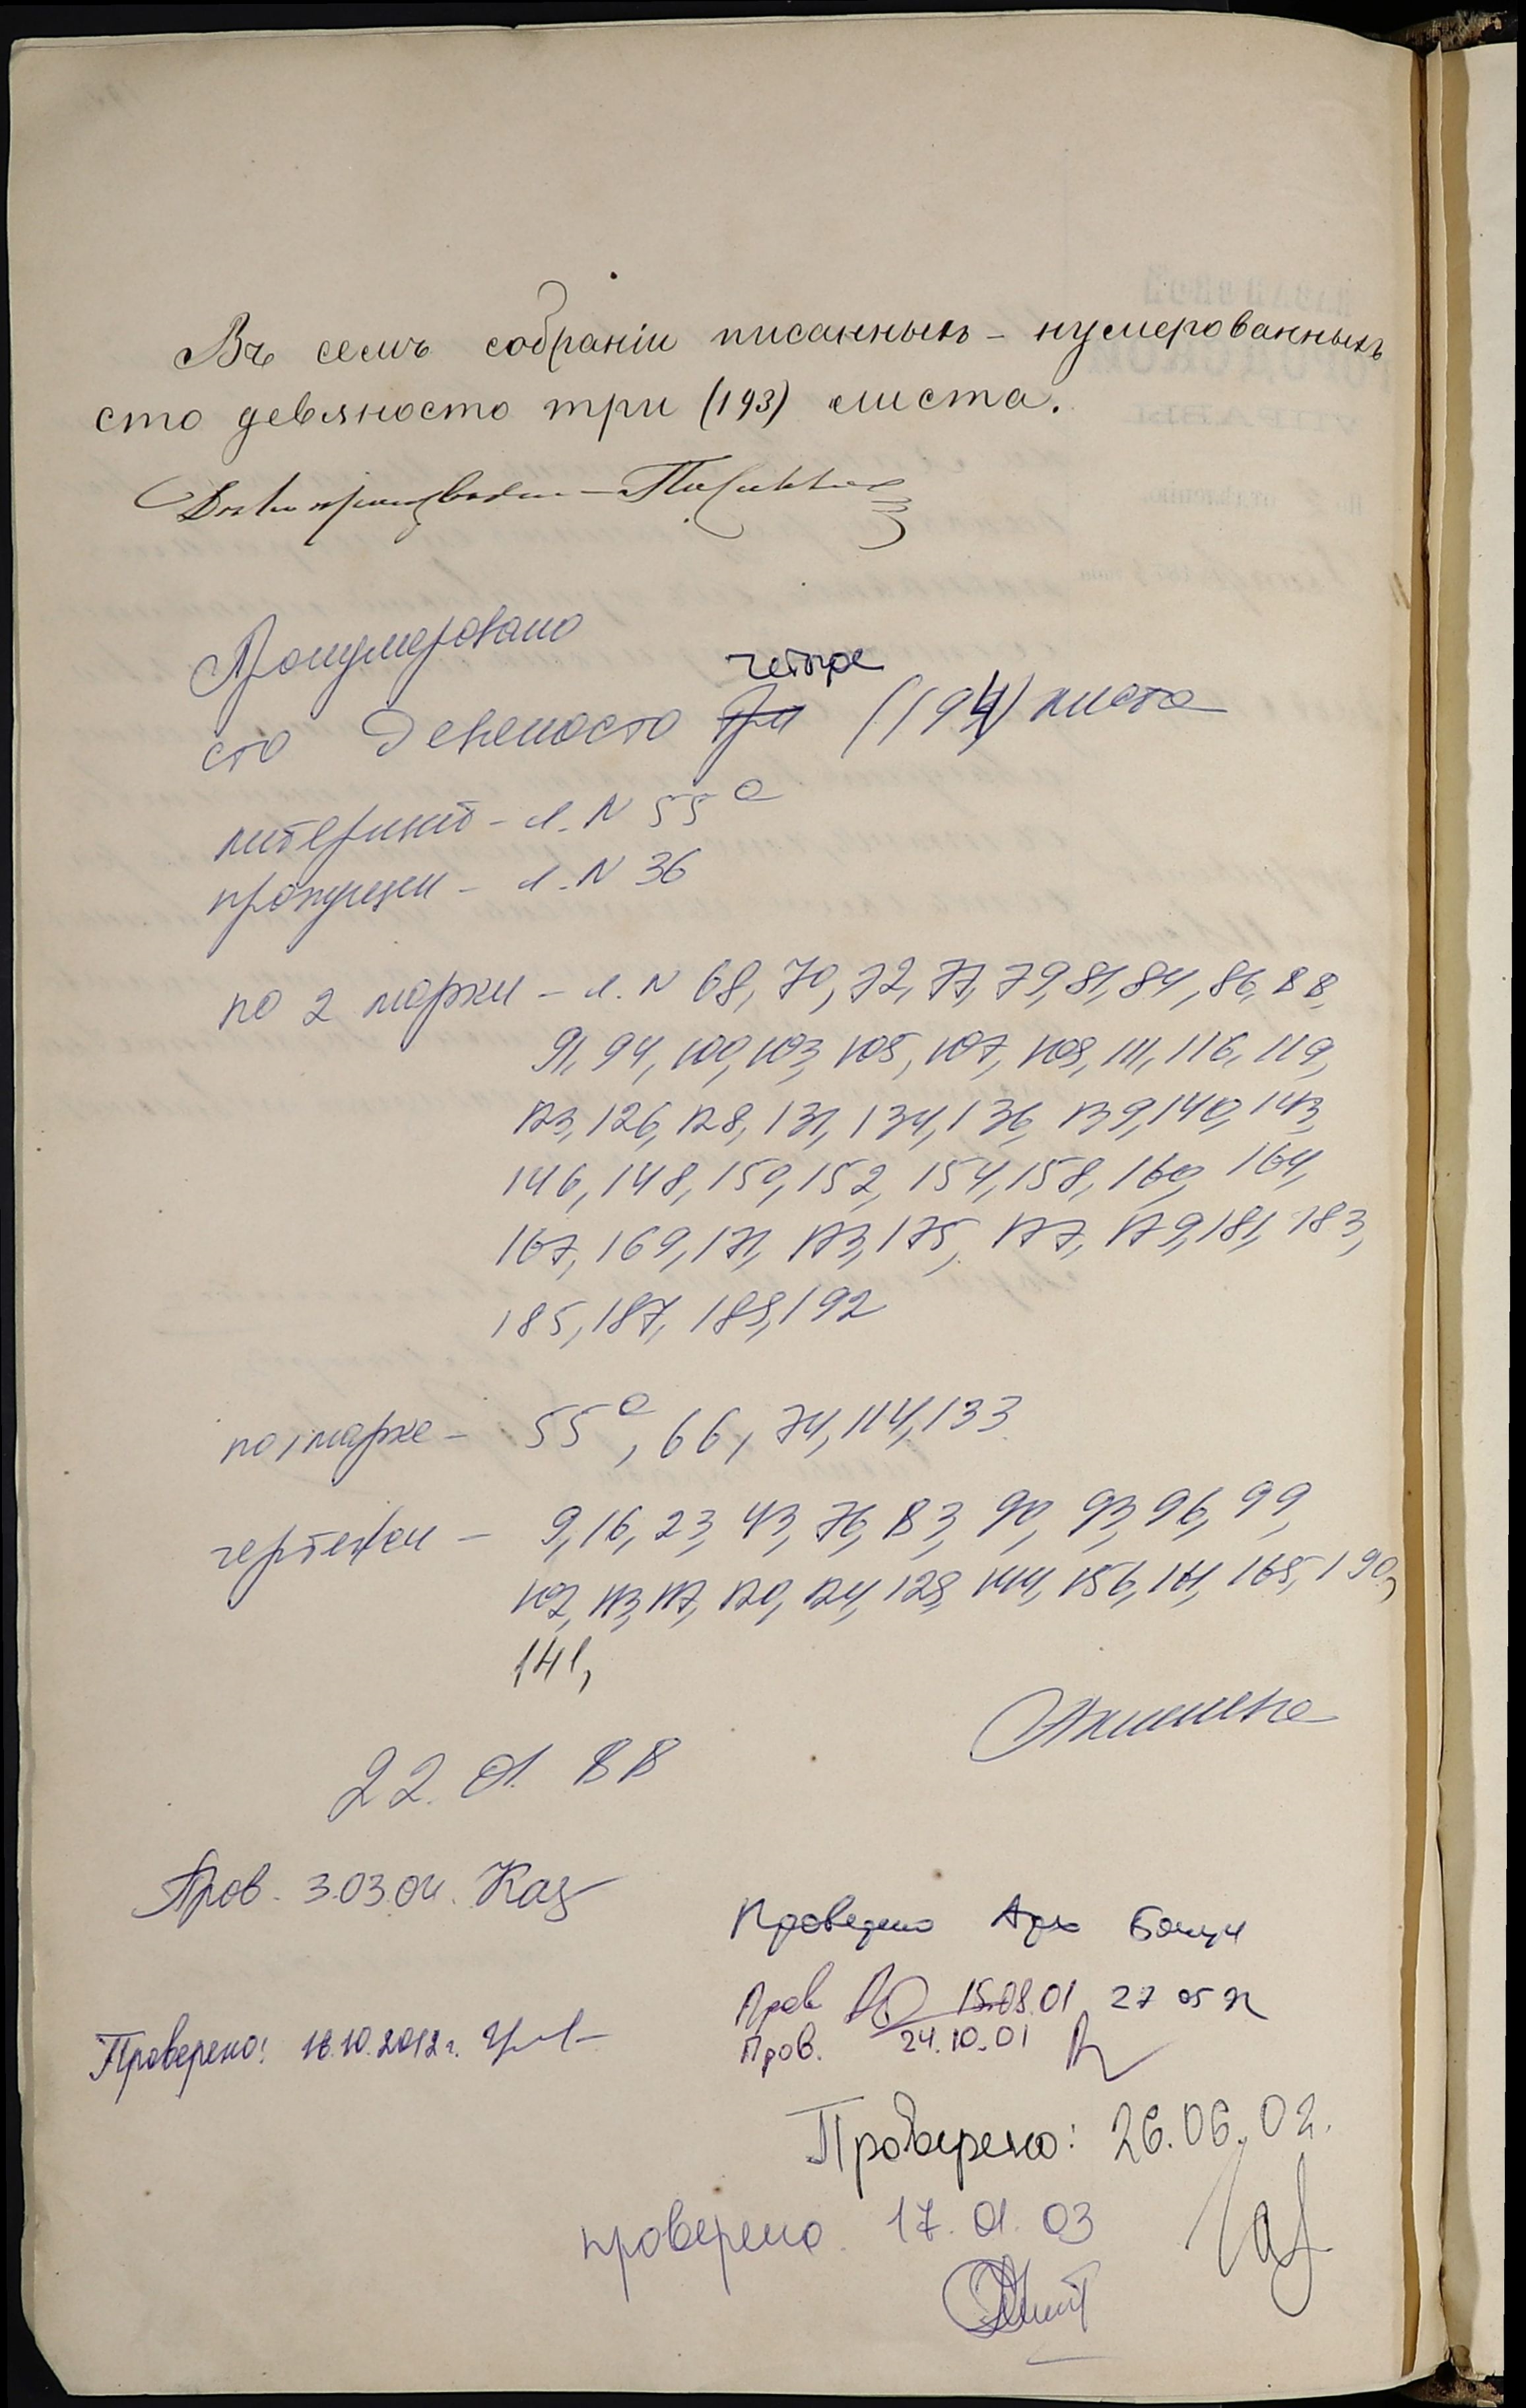 Въ семъ собраніи писанныхъ - нумерованныхъ
сто девяносто три (193) листа.
Пронумеровано
четыре
сто девяносто три (194) листа
литерный - л. N 55 а
пропущен - л. N 36
по 2 марки - л. N 68, 70, 72, 77, 79, 81, 84, 86, 88,
91, 94, 100, 103, 105, 107, 109, 111, 116, 119,
123, 126, 128, 131, 134, 136, 139, 140, 143,
146, 148, 150, 152, 154, 158, 160, 164,
167, 169, 171, 173, 175, 177, 179, 181, 183,
185, 187, 189, 192
по 1 марке - 55 а, 66, 74, 114, 133
чертежи - 9, 16, 23, 43, 76, 83, 90, 93, 96, 99,
102, 113, 117, 120, 124, 129, 144, 156, 161, 165, 190,
141,
22. 01. 88
Пров. 3.03.04. Каз
Проверено
Пров 15.08.01 27 05
Пров. 24.10.01
Проверено: 18.10.2012 г.
Проверено: 26.06.02.
проверено. 17. 01. 03